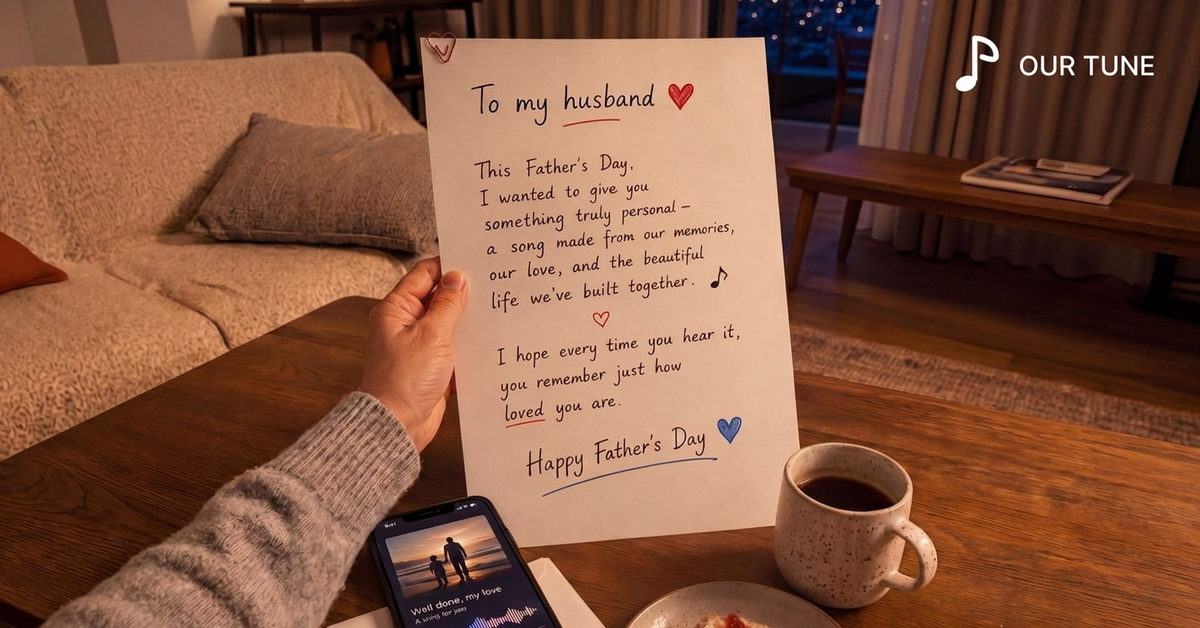 To my husband
This Father's Day,
I wanted to give you
something truly personal –
a song made from our memories,
our love, and the beautiful
life we've built together.
I hope every time you hear it,
you remember just how
loved you are.
Happy Father's Day
OUR TUNE
9:41
Well done, my love
A song for you